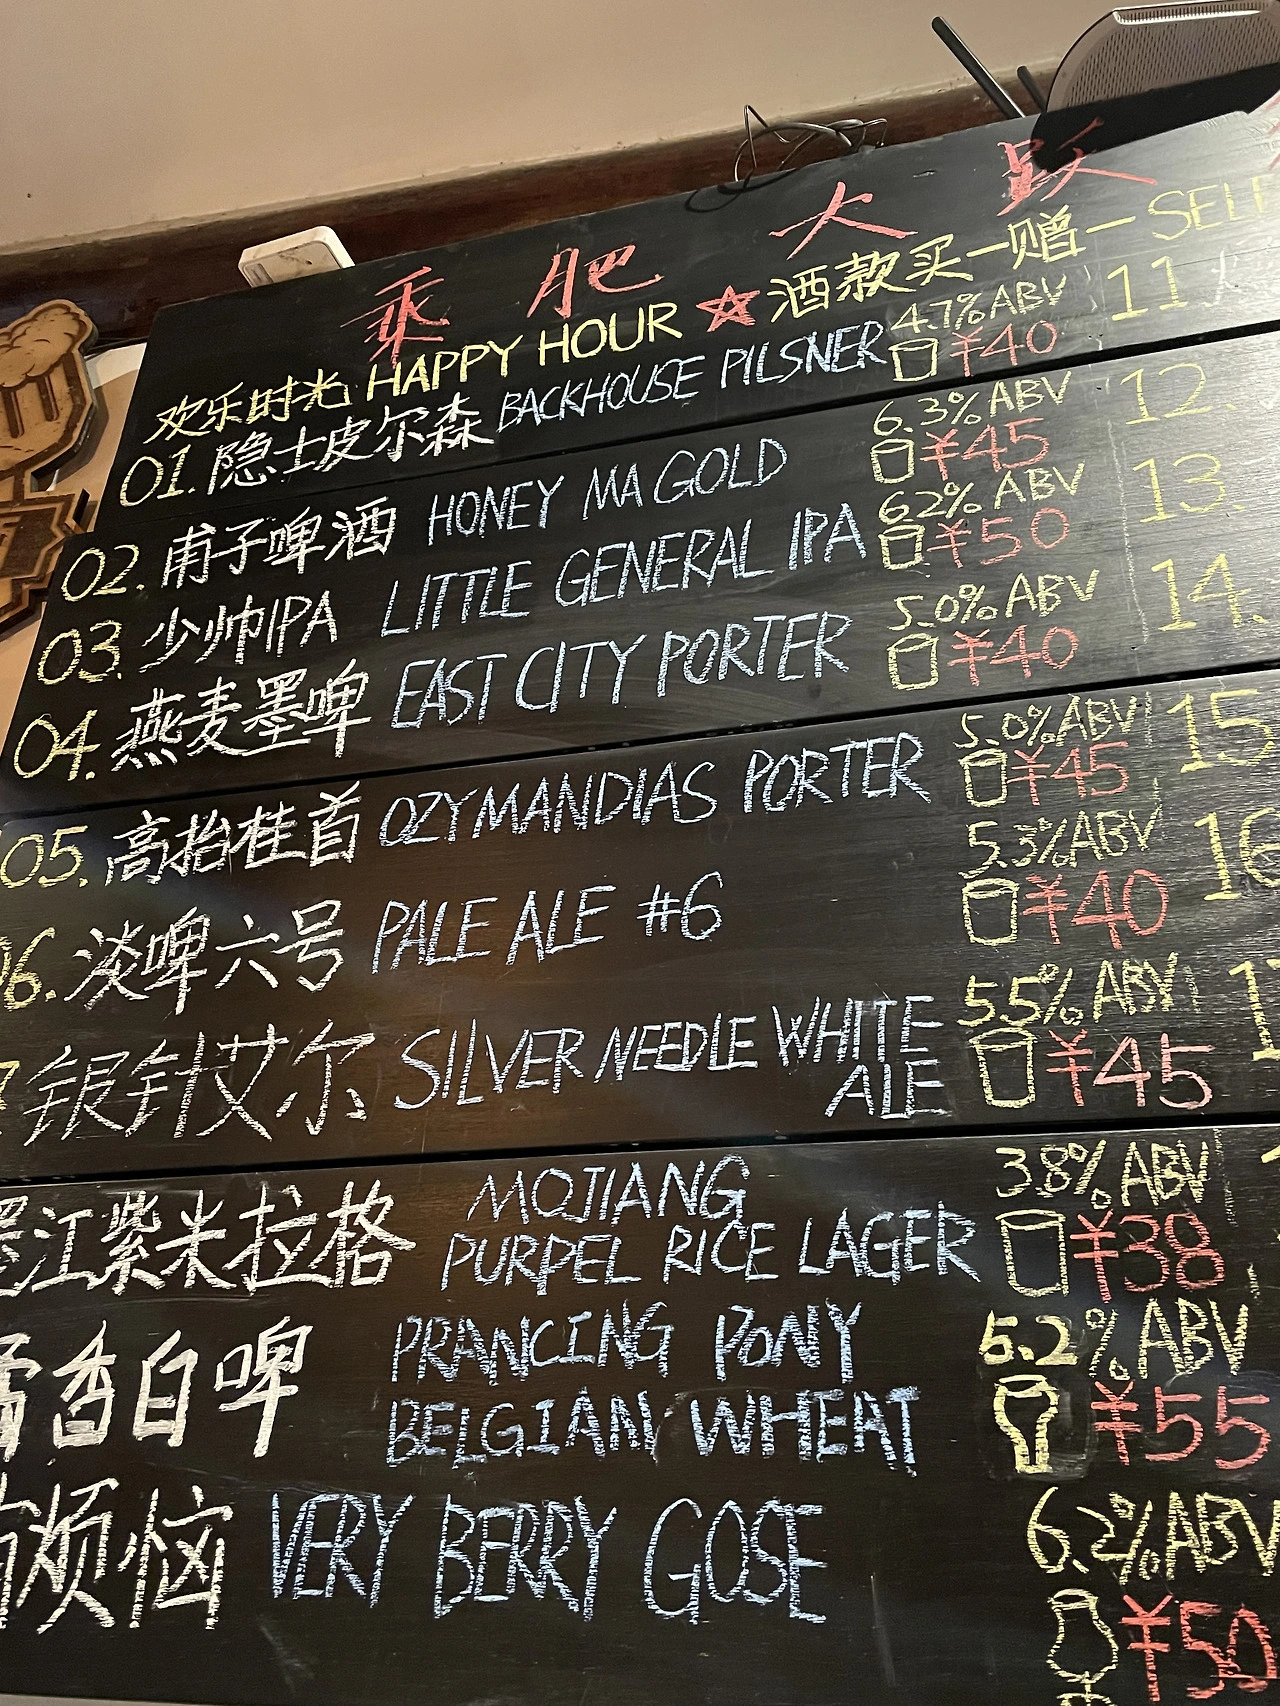 乘 肥 大 跃
欢乐时光 HAPPY HOUR ☆ 酒款买一赠一 SELE
01. 隐士皮尔森 BACKHOUSE PILSNER 4.7% ABV ¥40
02. 甫子啤酒 HONEY MA GOLD 6.3% ABV ¥45
03. 少帅IPA LITTLE GENERAL IPA 62% ABV ¥50
04. 燕麦墨啤 EAST CITY PORTER 5.0% ABV ¥40
05. 高抬桂首 OZYMANDIAS PORTER 5.0% ABV ¥45
06. 淡啤六号 PALE ALE #6 5.3% ABV ¥40
7 银针艾尔 SILVER NEEDLE WHITE ALE 5.5% ABV ¥45
墨江紫米拉格 MOJIANG PURPEL RICE LAGER 3.8% ABV ¥38
香白啤 PRANCING PONY BELGIAN WHEAT 5.2% ABV ¥55
烦恼 VERY BERRY GOSE 6.2% ABV ¥50
11
12.
13.
14.
15
16